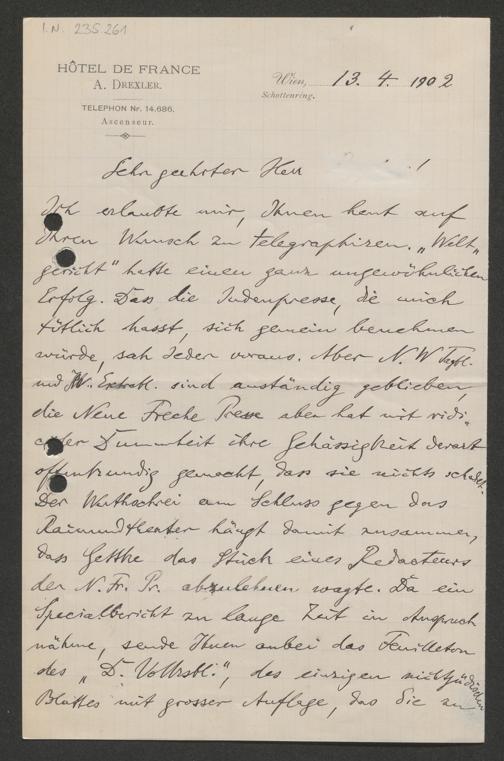 I.N. 235.261
HÔTEL DE FRANCE
A. DREXLER.
TELEPHON Nr. 14.686.
Ascenseur.
Wien, 13. 4. 1902
Schottenring.
Sehr geehrter Herr !
Ich erlaubte mir, Ihnen heut auf
Ihren Wunsch zu telegraphiren. „Welt„
gericht" hatte einen ganz ungewöhnlichen
Erfolg. Dass die Judenpresse, die mich
tötlich hasst, sich gemein benehmen
würde, sah Jeder voraus. Aber N. W Tagbl.
und W. Extrabl. sind anständig geblieben,
die Neue Freche Presse aber hat mit ridi„
culer Dummheit ihre Gehässigkeit derart
offenkundig gemacht, dass sie nichts schadet.
Der Wuthschrei am Schluss gegen das
Raimundtheater hängt damit zusammen,
dass Gettke das Stück eines Redacteurs
der N. Fr. Pr. abzulehnen wagte. Da ein
Specialbericht zu lange Zeit in Anspruch
nähme, sende Ihnen anbei das Feuilleton
des „D. Volksbl.", des einzigen nichtjüdischen
Blattes mit grosser Auflage, das Sie zu